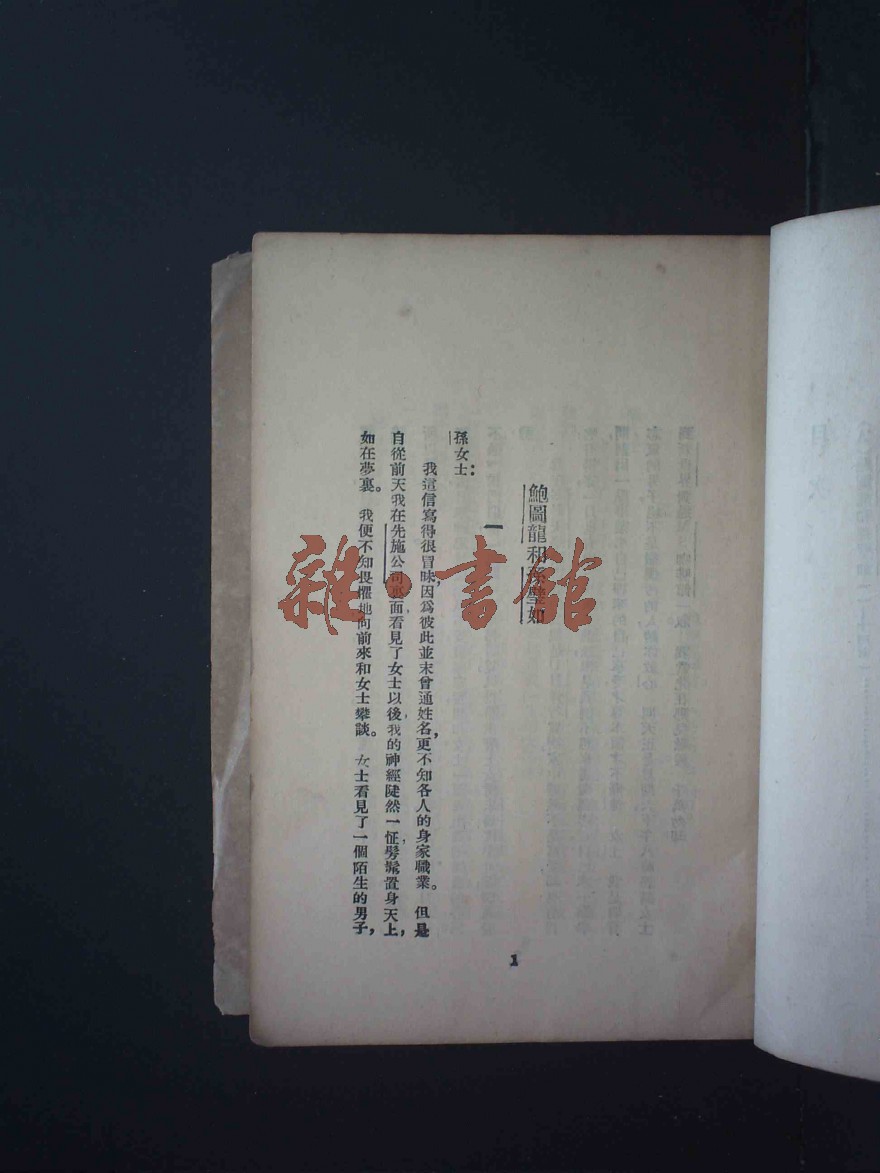 鮑圖龍和孫璧如
一
孫女士：
我這信寫得很冒昧，因爲彼此並未曾通姓名，更不知各人的身家職業。但是
自從前天我在先施公司裏面看見了女士以後，我的神經陡然一怔，髣髴置身天上，
如在夢裏。我便不知畏懼地向前來和女士攀談。女士看見了一個陌生的男子，
1
雜·書館